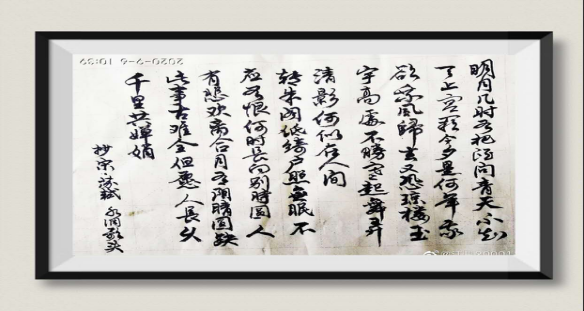 明月几时有把酒问青天不知
天上宫阙今夕是何年我
欲乘風歸去又恐琼楼玉
宇高處不勝寒起舞弄
清影何似在人间
转朱阁低绮户照無眠不
应有恨何时長向别時圆人
有悲欢离合月有阴晴圆缺
此事古难全但愿人長久
千里共婵娟
抄宋·苏轼 水调歌头
2020-9-6 10:39